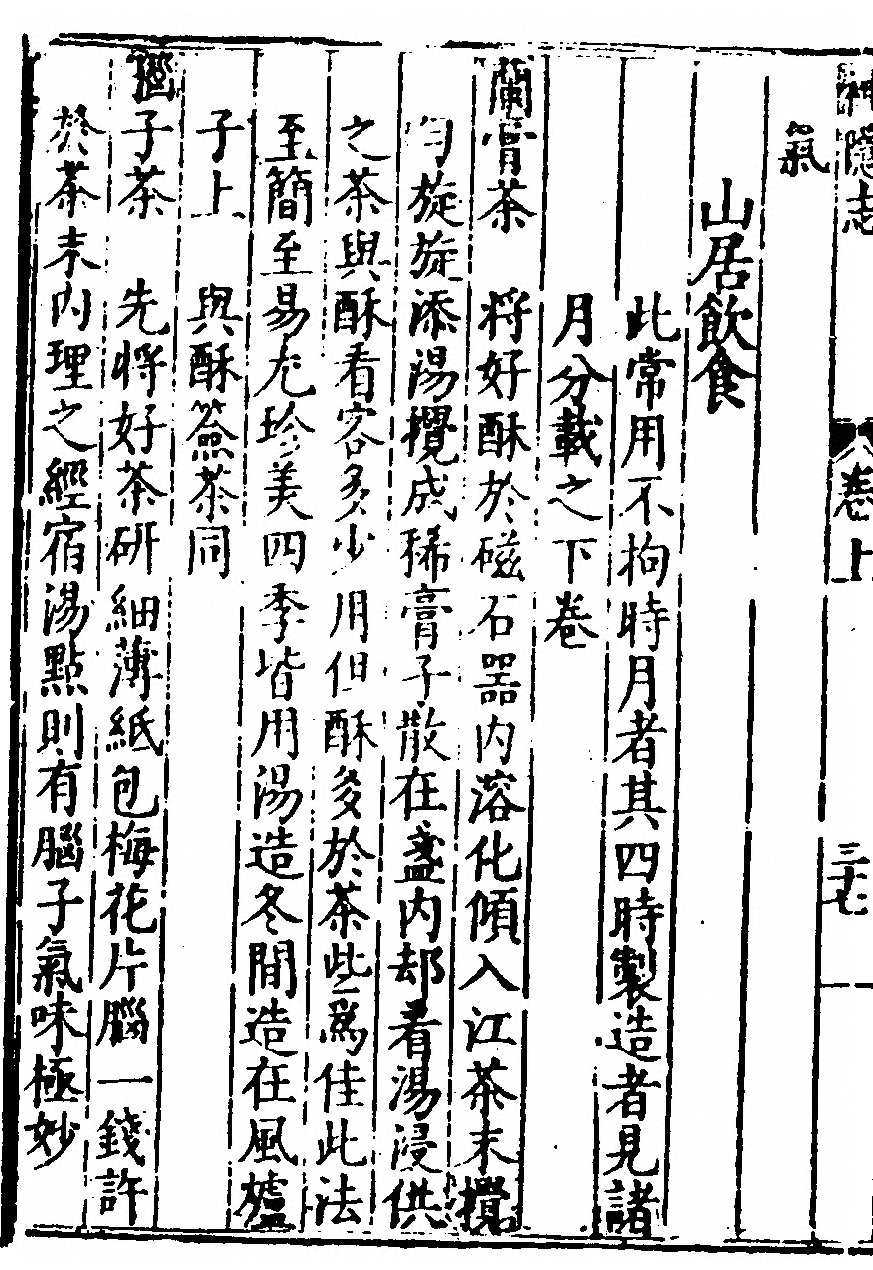 神隱志 卷上 三十七
氣
山居飲食
此常用不拘時月者其四時製造者見諸
月分載之下卷
蘭膏茶 將好酥於磁石器内溶化傾入江茶末攪
勻旋旋添湯攪成稀膏子散在盞内却看湯浸供
之茶與酥看客多少用但酥多於茶些爲佳此法
至簡至易尤珍美四季皆用湯造冬間造在風爐
子上 與酥簽茶同
腦子茶 先將好茶研細薄紙包梅花片腦一錢許
於茶末内理之經宿湯點則有腦子氣味極妙